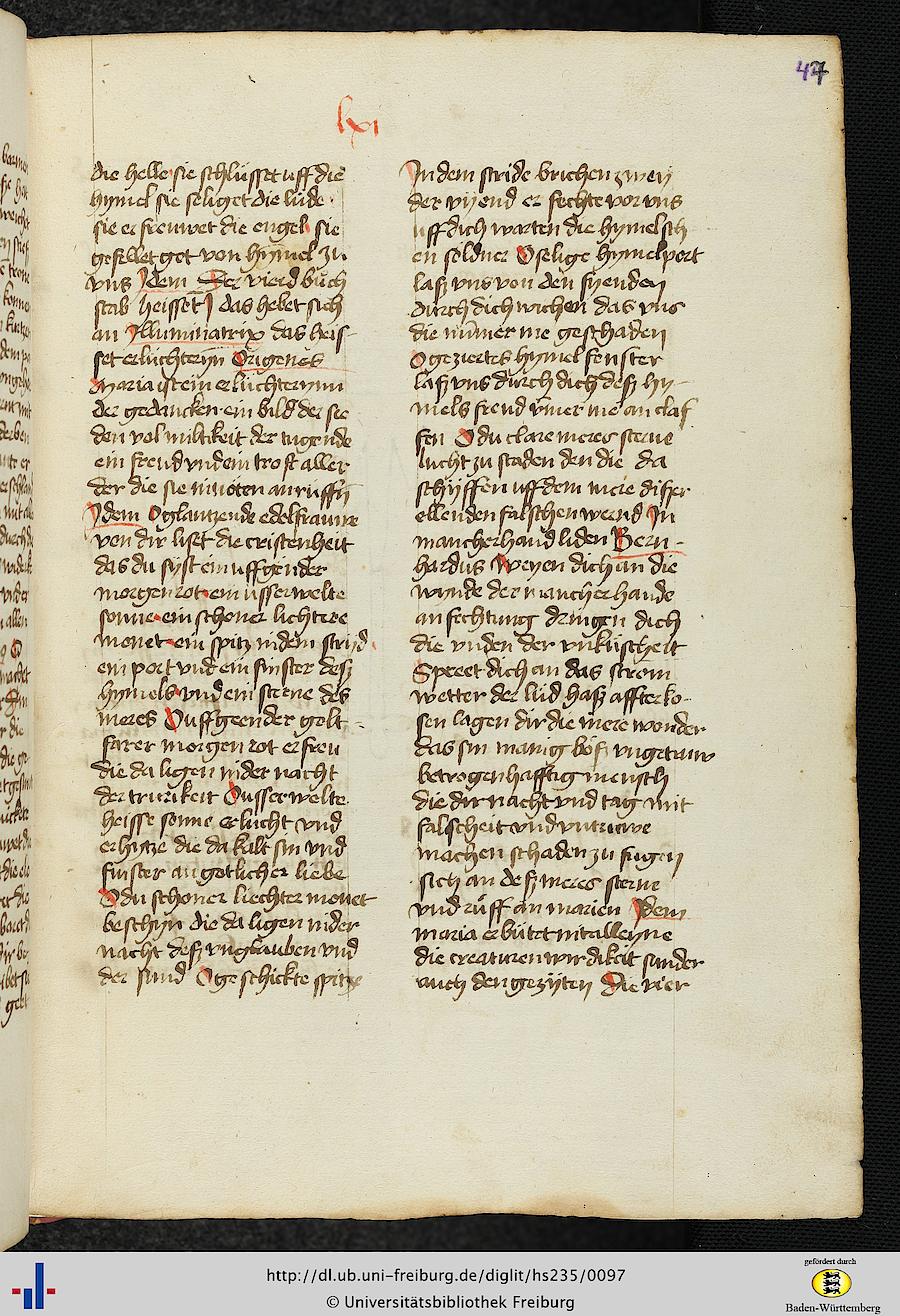 47
lxi
die helle sie schlüsset uff die
hymel sie seliget die lüde
sie erfreuwet die engel sie
gesellet got von hymel zu
vns Jdem Der vierd büch
stab heisset J das hebet sich
an Jlluminatrix das heis
set erlüchteryn Origenes
Maria ist ein erlüchterynn
der gedancken ein bild der see
den vol miltikeit der tugende
ein freud vnd ein trost aller
der die sie in nöten anruffen
Jdem O glantzende edel frauwe
von dir liset die cristenheit
das du syst ein uffgender
morgen rot ein usserwelte
sonne ein schoner lichtere
monet ein spitz in dem stryd
ein port vnd ein finster desz
hymels vnd ein sterne des
meres O uffgeender golt
farer morgen rot erfreu
die da ligen in der nacht
der trurikeit O usserwelte
heisse sonne erlücht vnd
erhytze die da kalt sin vnd
finster an gotlicher liebe
O du schoner liechter monet
beschyn die da ligen in der
nacht desz vnglauben vnd
der sund O geschickte spitze
Jn dem stride brichen zwey
der vyend er fechte vor vns
uff dich warten die hymelsch
en soldner O selige hymelport
lasz vns von den fyenden
durch dich wichen das vns
die nümer me geschaden
O geziertes hymel fenster
lasz vns durch dich desz hy
mels freud ymer me an claf
fen O du clare meres sterne
lucht zu staden den die da
schyffen uff dem mere diszer
ellenden falschen wernd Jn
mancherhand liden Bern
hardus Weyen dich an die
wynde der mancherhande
anfechtung dringen dich
die vnden der vnküscheit
Spreet dich an das strom
wetter der lüd hasz affterko
sen lagen dir die mere wonder
das sin manig bösz vngetruw
betrogenhafftig mensch
die dir nacht vnd tag mit
falscheit vnd vntruwe
machen schaden zu fugen
sich an desz meres sterne
vnd rüff an marien Jdem
maria erbütet nit alleyne
die creaturen wirdikeit sunder
auch den gezyten Die vier
http://dl.ub.uni-freiburg.de/diglit/hs235/0097
© Universitätsbibliothek Freiburg
gefördert durch
Baden-Württemberg